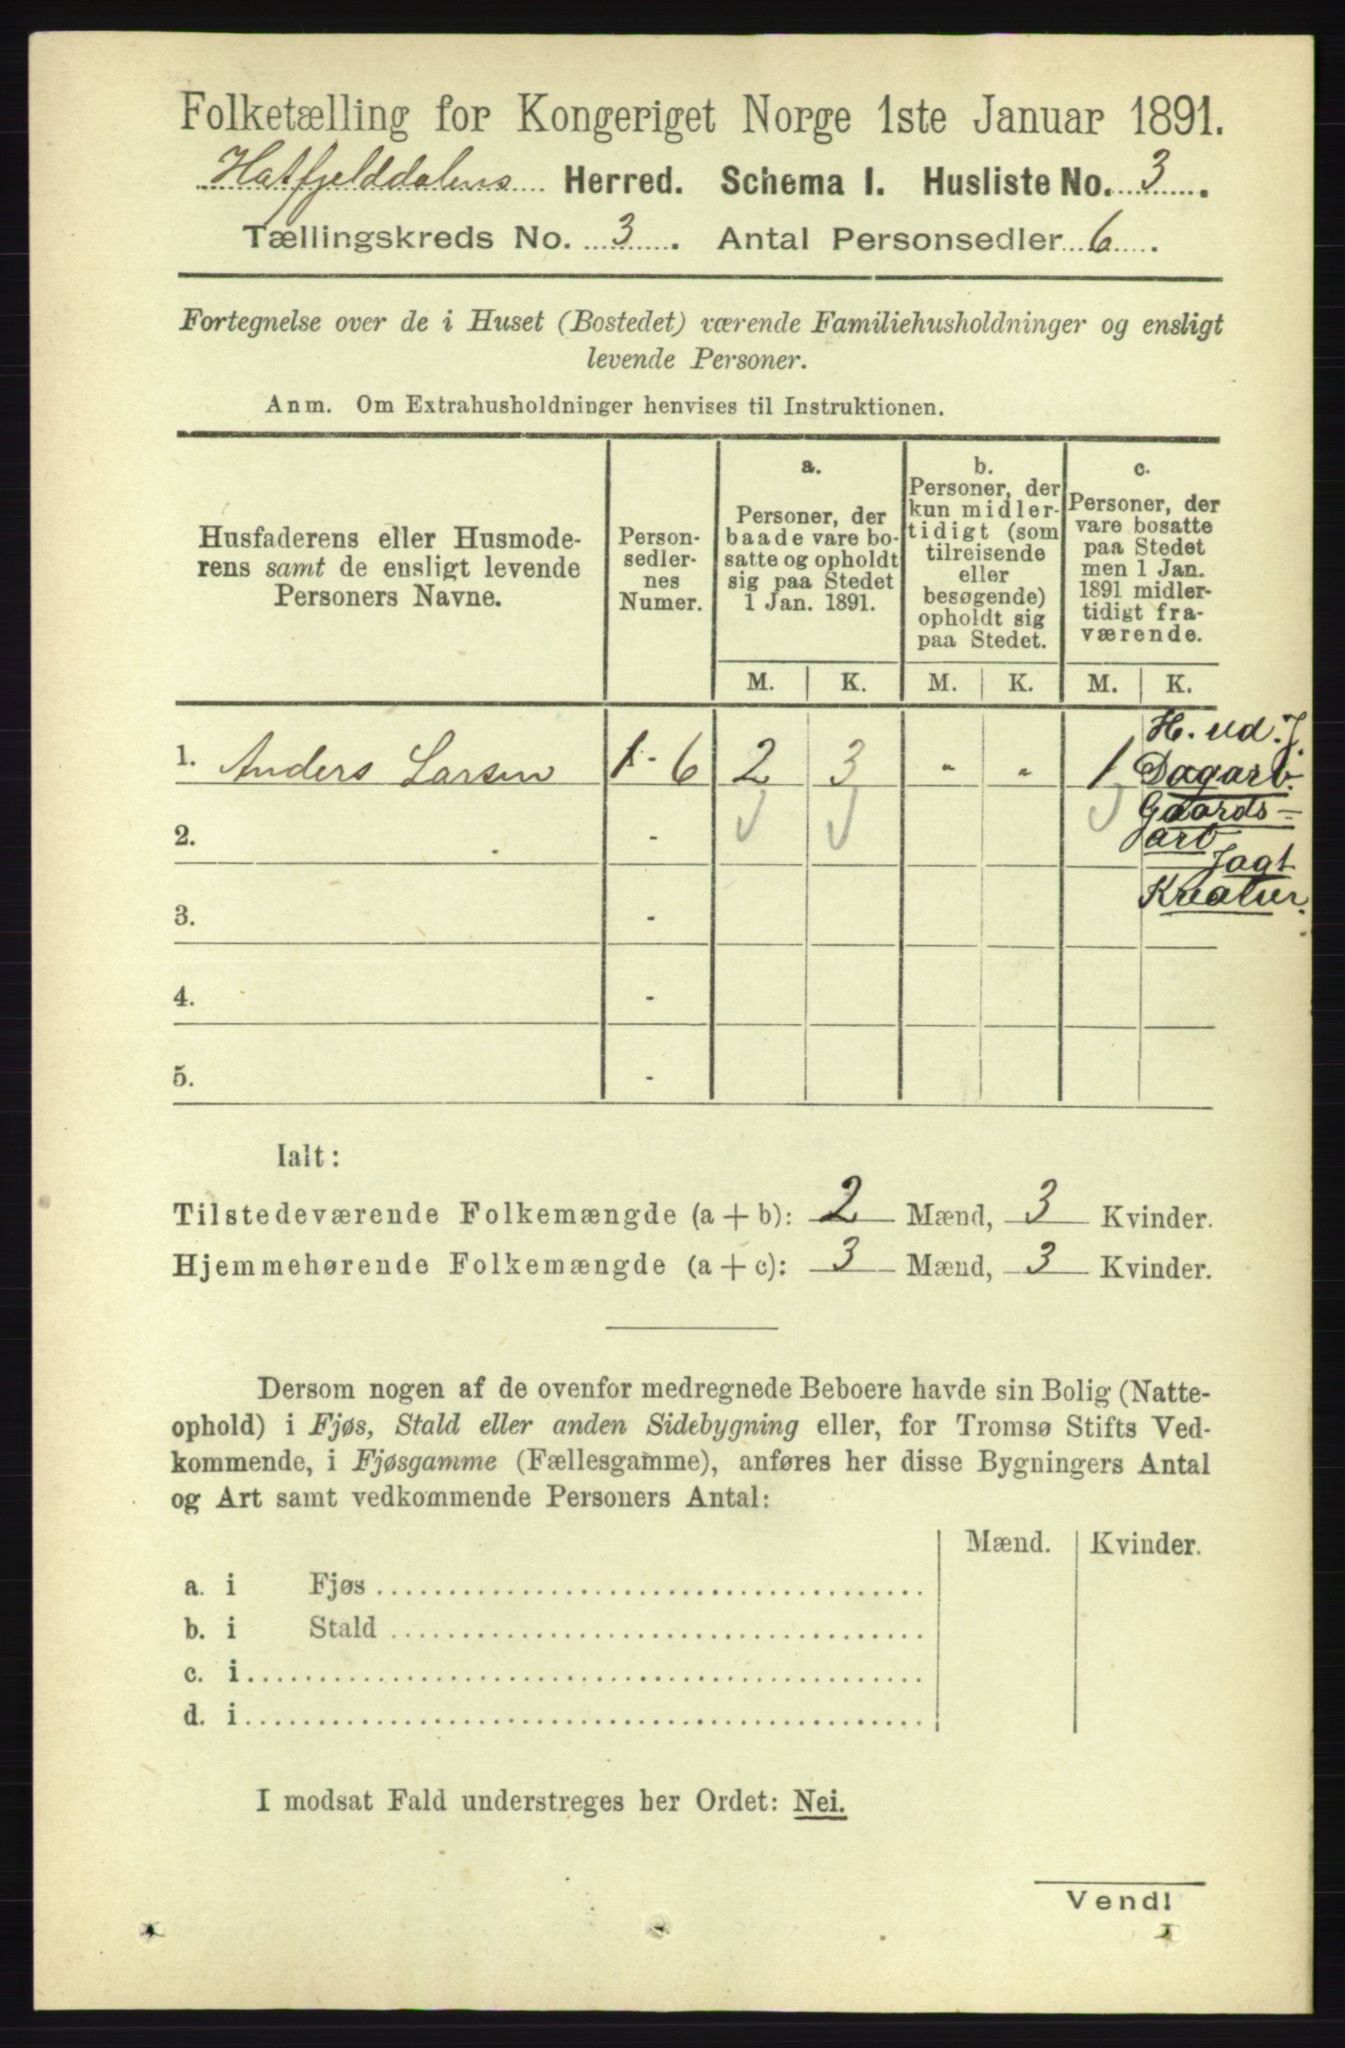 Folketælling for Kongeriget Norge 1ste Januar 1891.
Hatfjelddalens Herred. Schema I. Husliste No. 3.
Tællingskreds No. 3. Antal Personsedler 6.
Fortegnelse over de i Huset (Bostedet) værende Familiehusholdninger og ensligt
levende Personer.
Anm. Om Extrahusholdninger henvises til Instruktionen.
Husfaderens eller Husmode-
rens samt de ensligt levende
Personers Navne.
Person-
sedler-
nes
Numer.
a.
Personer, der
baade vare bo-
satte og opholdt
sig paa Stedet
1 Jan. 1891.
b.
Personer, der
kun midler-
tidigt (som
tilreisende
eller
besøgende)
opholdt sig
paa Stedet.
c.
Personer, der
vare bosatte
paa Stedet
men 1 Jan.
1891 midler-
tidigt fra-
værende.
M. K. M. K. M. K.
1. Anders Larsen 1-6 2 3 " " 1
H. ud. J.
Dagarb.
Gaards-
arb
Jagt
Kreatur.
2. -
3. -
4. -
5. -
Ialt:
Tilstedeværende Folkemængde (a + b): 2 Mænd, 3 Kvinder.
Hjemmehørende Folkemængde (a + c): 3 Mænd, 3 Kvinder.
Dersom nogen af de ovenfor medregnede Beboere havde sin Bolig (Natte-
ophold) i Fjøs, Stald eller anden Sidebygning eller, for Tromsø Stifts Ved-
kommende, i Fjøsgamme (Fællesgamme), anføres her disse Bygningers Antal
og Art samt vedkommende Personers Antal:
Mænd. Kvinder.
a. i Fjøs
b. i Stald
c. i
d. i
I modsat Fald understreges her Ordet: Nei.
Vendl